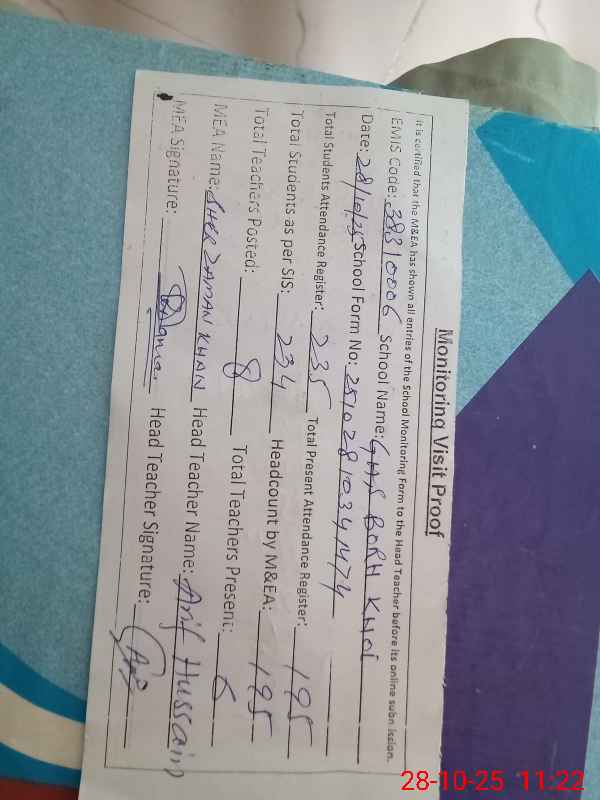 Monitoring Visit Proof
It is certified that the M&EA has shown all entries of the School Monitoring Form to the Head Teacher before its online submission.
EMIS Code: 38310006 School Name: GHS BORH KHOI
Date: 28/10/25 School Form No: 25102810341474
Total Students Attendance Register: 235 Total Present Attendance Register: 195
Total Students as per SIS: 234 Headcount by M&EA: 195
Total Teachers Posted: 8 Total Teachers Present:
MEA Name: SHER ZAMAN KHAN Head Teacher Name: Arif Hussain
MEA Signature: Head Teacher Signature:
28-10-25 11:22